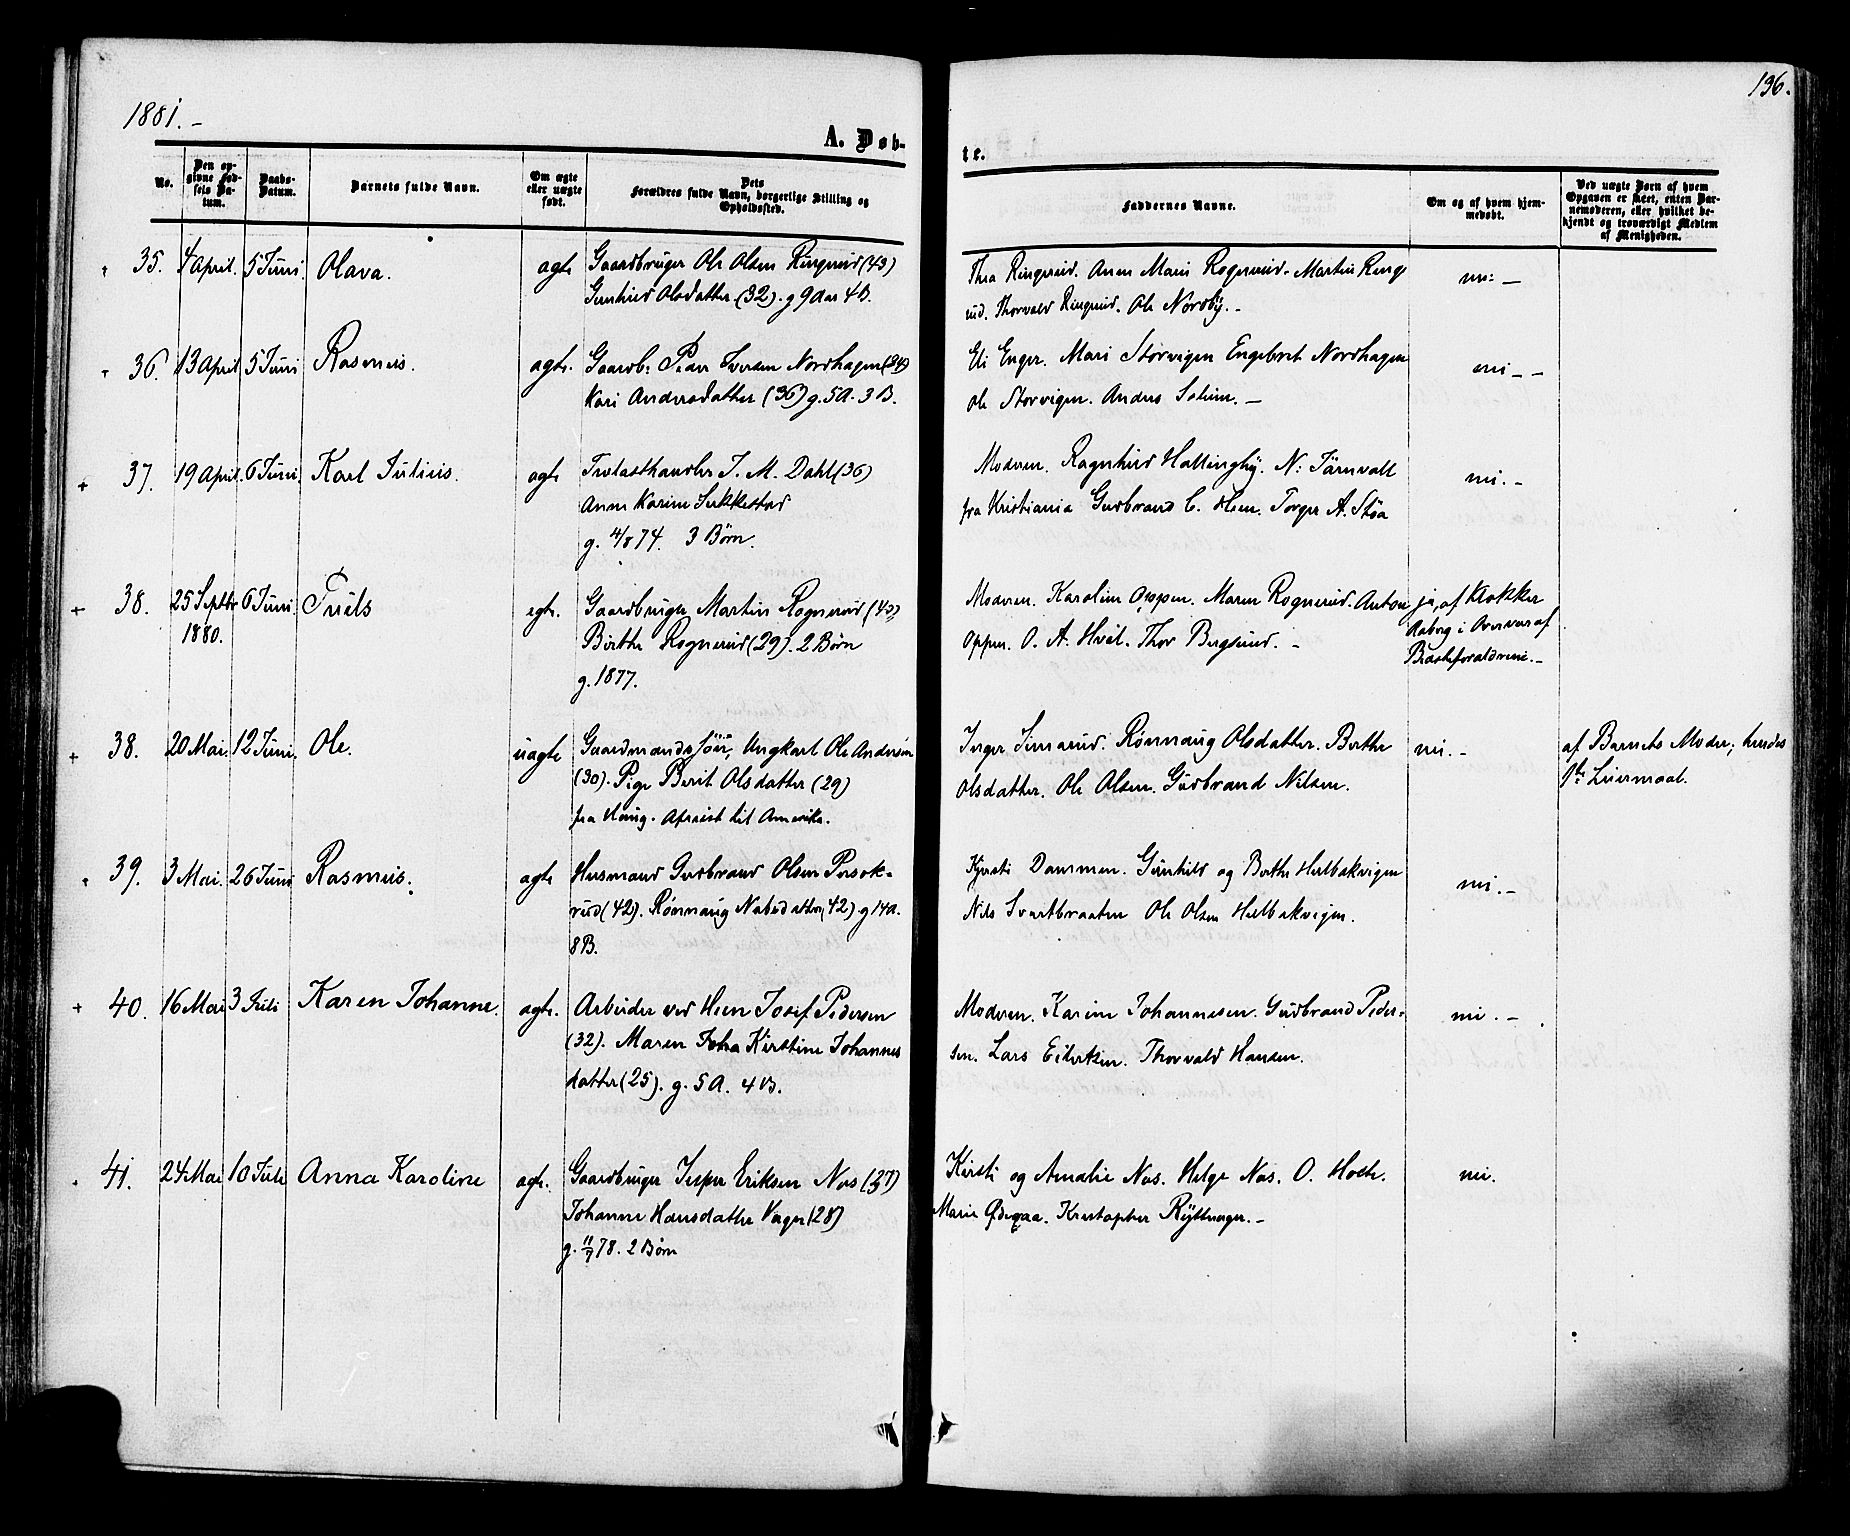 1881.-
196.
A. Døb-
te.
No.
Den op-
givne Fød-
sels Da-
tum.
Daabs-
Datum.
Barnets fulde Navn.
Om ægte
eller uægte
født.
Dets
Forældres fulde Navn, borgerlige Stilling og
Opholdssted.
Faddernes Navne.
Om og af hvem hjem-
medøbt.
Ved uægte Børn af hvem
Opgaven er skeet, enten Bar-
nemoderen, eller hvilket be-
kjendt og troværdigt Medlem
af Menigheden.
35. 4 April. 5 Juni Olava. ægte Gaardbruger Ole Olsen Ringerud (43)
Gunhild Olsdatter (32). g 9 Aar 4 B.
Thea Ringerud. Anne Marie Rognerud. Martin Ringe
rud. Thorvald Ringerud. Ole Nordby. -
nei -
36. 13 April 5 Juni Rasmus. ægte. Gaardb: Peder Iversen Nordhagen (34)
Kari Andersdatter (36) g. 5 A. 3 B.
Eli Enger. Mari Storvigen Engebret Nordhagen
Ole Storvigen. Anders Solum. -
nei - -
37. 19 April. 6 Juni Karl Julius. ægte Trælasthandler J. M. Dahl (36)
Anne Karine Sekkestad
g. 4/8 74. 3 Børn.
Moderen. Ragnhild Hallingby. N: Järnvall
fra Kristiania Gudbrand C. Hen. Torger A. Støa
nei. -
38. 25 Septbr 6 Juni Truls egte. Gaardbruger Martin Rognerud (43)
1880.
Birthe Rognerud (29). 2 Børn
g. 1877.
Moderen. Karoline Oppen. Maren Rognerud. Anton
Oppen. O. A. Hval. Thor Bergsund. -
ja, af Klokker
Aaberg i Overvær af
Bedsteforældrene. -
38. 20 Mai. 12 Juni. Ole. uægte Gaardmandssøn, Ungkarl Ole Andersen
(30). Pige Berit Olsdatter (29)
fra Haug. Afreist til Amerika.
Inger Simarud. Rönnaug Olsdatter. Berthe
Olsdatter. Ole Olsen. Gudbrand Nilsen.
nei. -
af Barnets Moder; hendes
1ste Leiermaal.
39. 3 Mai. 26 Juni Rasmus. ægte Husmand Gudbrand Olsen Persok-
rud (42). Rönnaug Nubsdatter (42) g 14 A.
8 B.
Kjersti Dammen. Gunhild og Berthe Halbakvigen
Nils Svartbraaten Ole Olsen Halbakvigen.
nei. -
40. 16 Mai 3 Juli Karen Johanne. ægte. Arbeider ved Heen Josef Pedersen
(32). Maren Joha Kirstine Johannes
datter (25). g. 5 A. 4 B.
Moderen. Karine Johannesen. Gudbrand Peder-
sen. Lars Eilertsen. Thorvald Hansen.
nei. -
41. 24 Mai 10 Juli Anna Karoline ægte. Gaardbruger Jesper Eriksen Næs (37)
Johanne Hansdatter Vager (28)
g. 11/7 78. 2 Børn
Kirsti og Amalie Næs. Helge Næs. O. Hoch.
Marie Ødegaa. Kristopher Rytterager. -
nei.